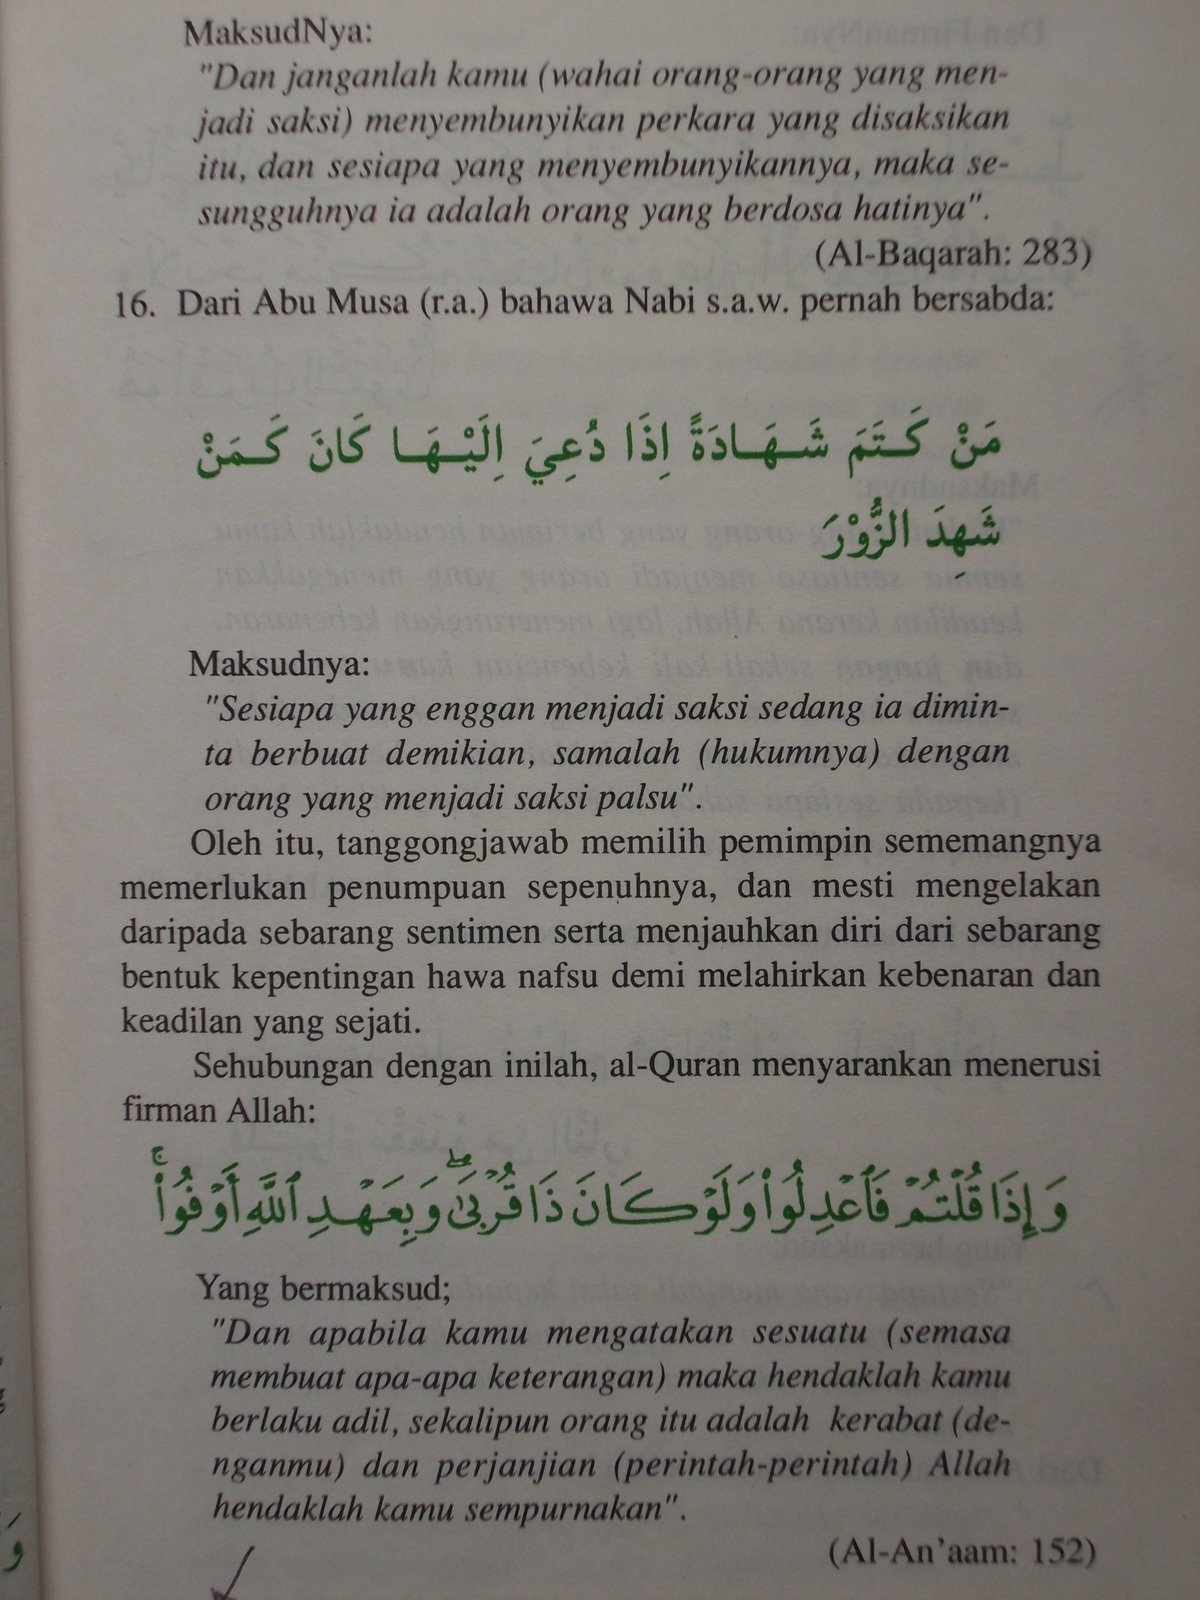 MaksudNya:
"Dan janganlah kamu (wahai orang-orang yang men-
jadi saksi) menyembunyikan perkara yang disaksikan
itu, dan sesiapa yang menyembunyikannya, maka se-
sungguhnya ia adalah orang yang berdosa hatinya".
(Al-Baqarah: 283)
16. Dari Abu Musa (r.a.) bahawa Nabi s.a.w. pernah bersabda:
مَنْ كَتَمَ شَهَادَةً اِذَا دُعِيَ اِلَيْهَا كَانَ كَمَنْ
شَهِدَ الزُّوْرَ
Maksudnya:
"Sesiapa yang enggan menjadi saksi sedang ia dimin-
ta berbuat demikian, samalah (hukumnya) dengan
orang yang menjadi saksi palsu".
Oleh itu, tanggongjawab memilih pemimpin sememangnya
memerlukan penumpuan sepenuhnya, dan mesti mengelakan
daripada sebarang sentimen serta menjauhkan diri dari sebarang
bentuk kepentingan hawa nafsu demi melahirkan kebenaran dan
keadilan yang sejati.
Sehubungan dengan inilah, al-Quran menyarankan menerusi
firman Allah:
وَإِذَا قُلْتُمْ فَٱعْدِلُوا۟ وَلَوْ كَانَ ذَا قُرْبَىٰۖ وَبِعَهْدِ ٱللَّهِ أَوْفُوا۟ۚ
Yang bermaksud;
"Dan apabila kamu mengatakan sesuatu (semasa
membuat apa-apa keterangan) maka hendaklah kamu
berlaku adil, sekalipun orang itu adalah kerabat (de-
nganmu) dan perjanjian (perintah-perintah) Allah
hendaklah kamu sempurnakan".
(Al-An'aam: 152)